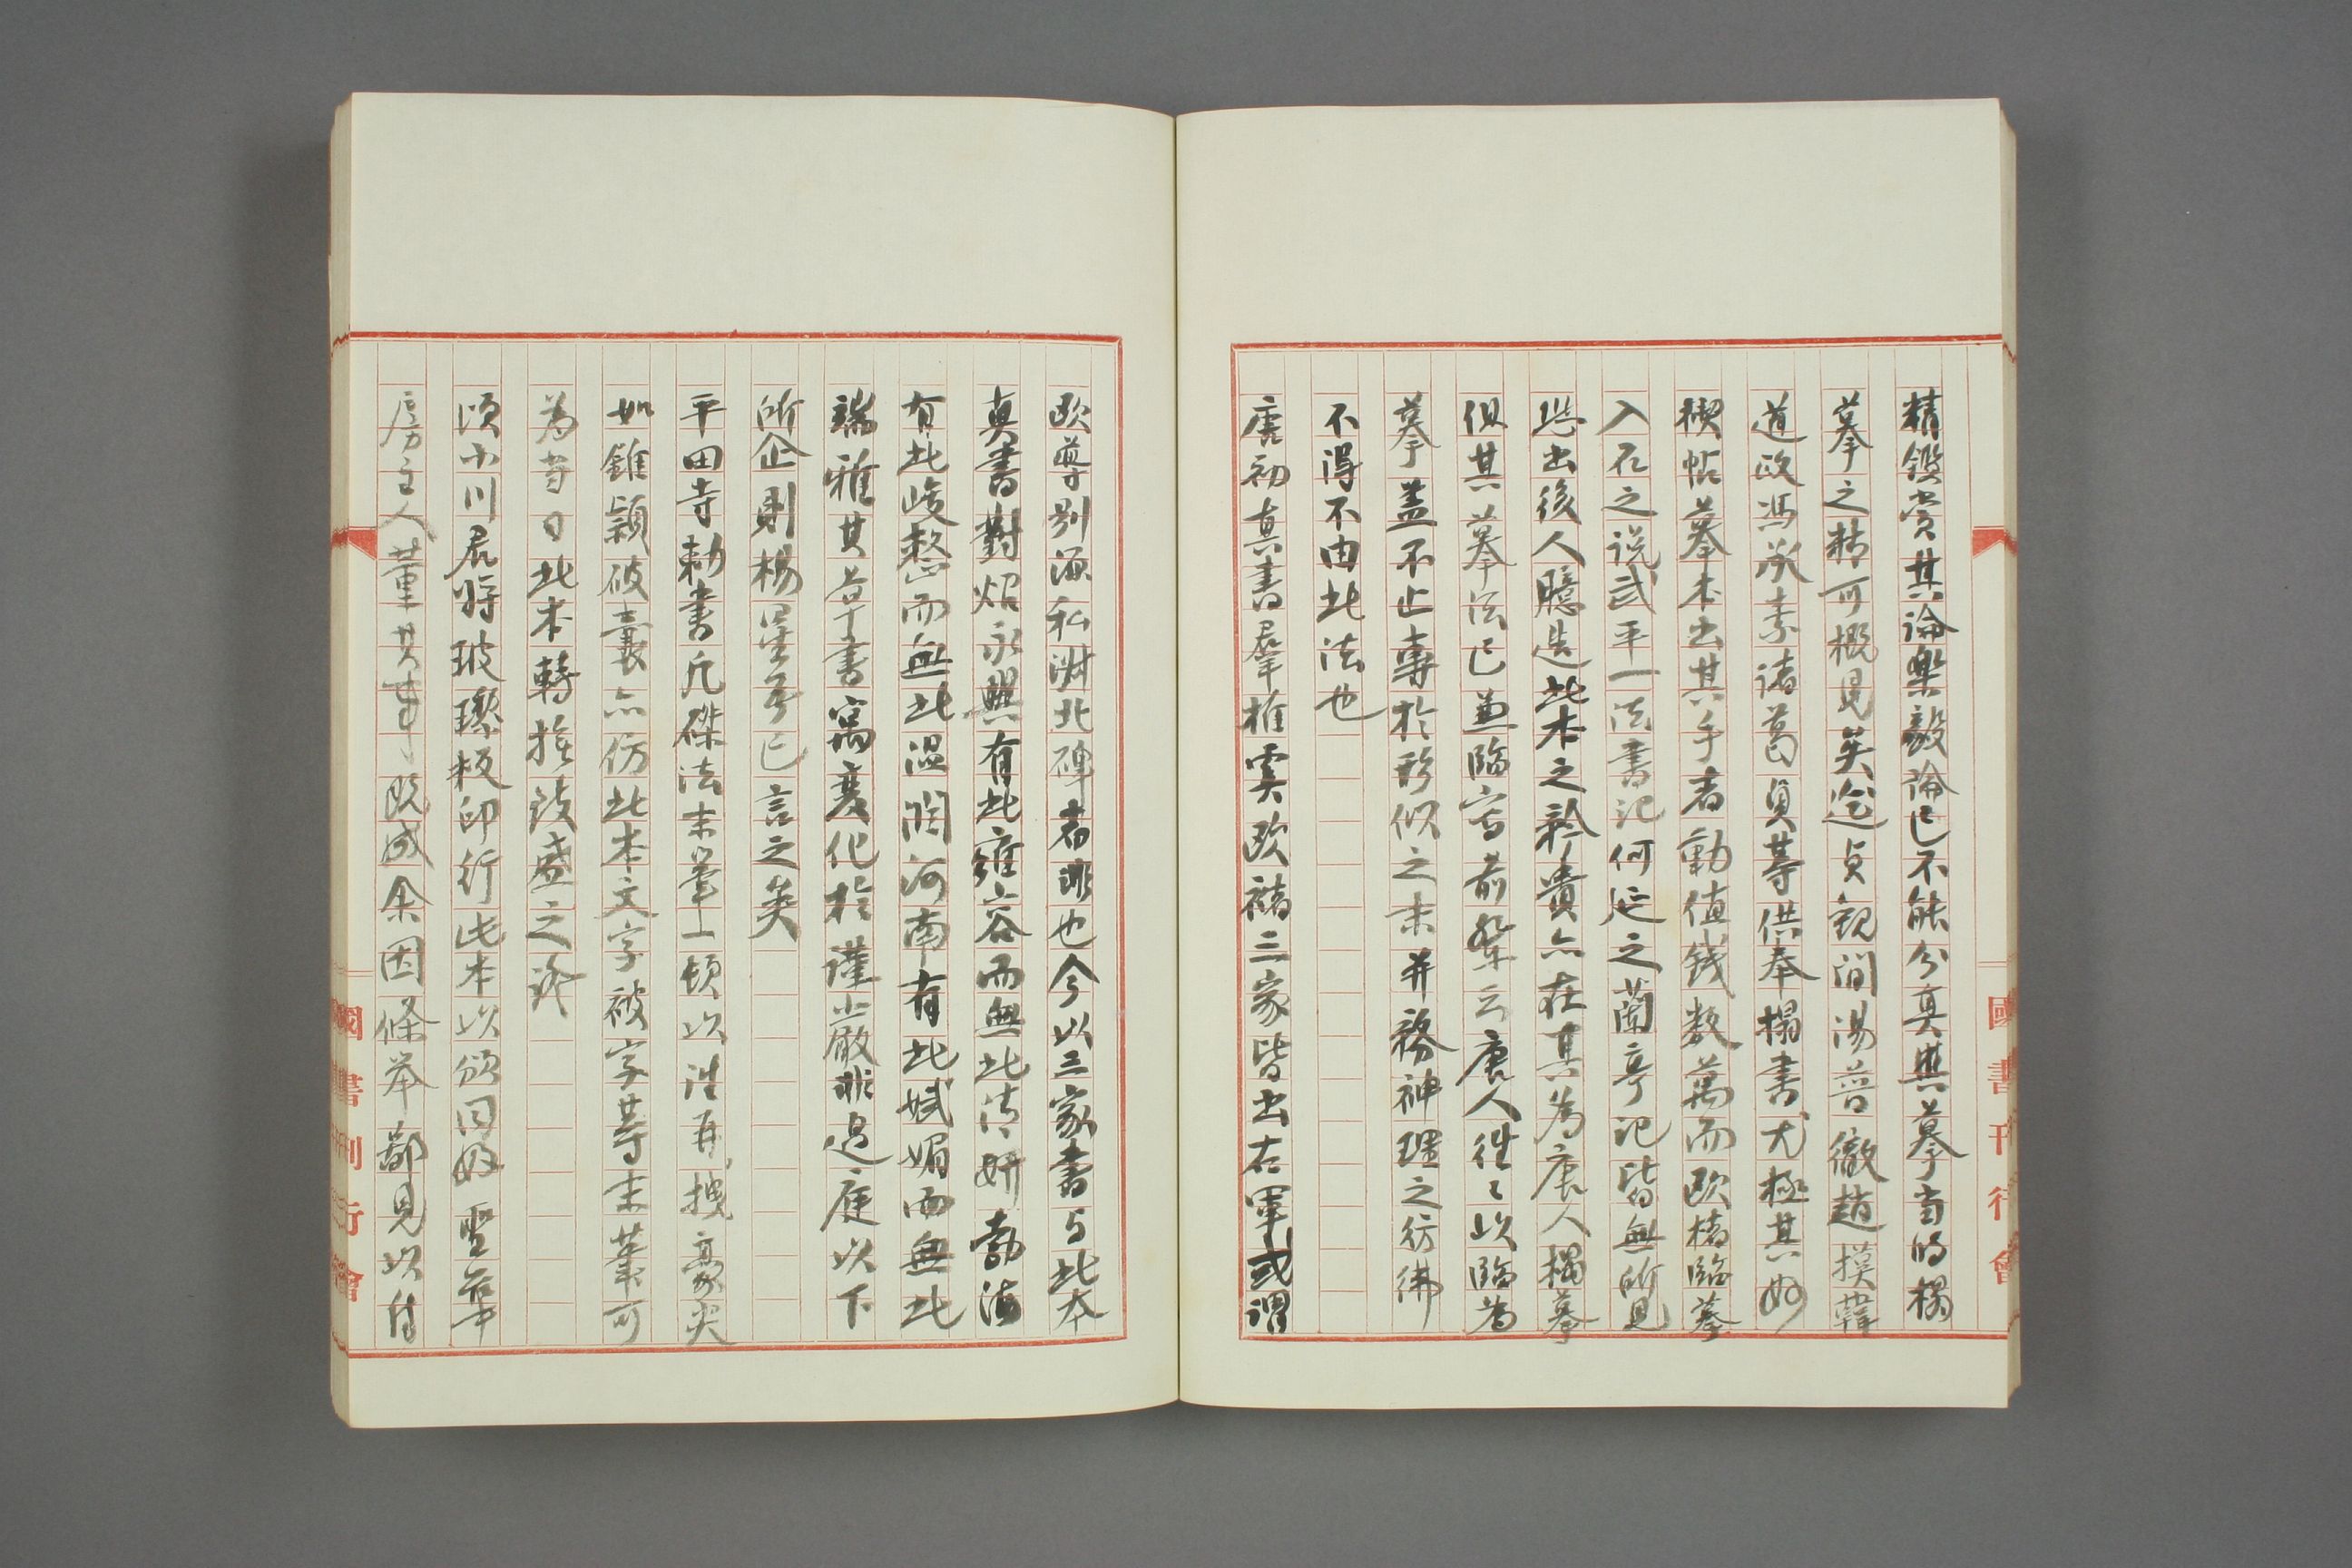 精鑒賞其論樂毅論已不能分真與摹當時搨
摹之精可概見矣迨貞觀間湯普徹趙摸韓
道政馮承素諸葛貞等供奉搨書尤極其妙
禊帖摹本出其手者動値錢数萬而歐褚臨摹
入石之説武平一法書記何延之蘭亭記皆無所見
恐出後人臆造此本之矜貴亦在其為唐人搨摹
但其摹法已兼臨寫前輩云唐人往々以臨為
摹蓋不止専於形似之末并務神理之彷彿
不得不由此法也
唐初真書群推虞歐褚三家皆出右軍或謂
歐尊別源私淑北碑者非也今以三家書与此本
真書對炤永興有此雍容而無此清妍勃海
有此峻整而無此温潤河南有此娬媚而無此
端雅其草書寓変化於謹嚴非過庭以下
所企則楊星吾已言之矣
平田寺勅書凡磔法末筆一頓以注再拽豪尖
如錐穎破囊亦仿此本文字被字等末筆可
為當日此本轉推致盛之證
頃小川君将玻瓈板印行此本以頒同好聖華
房主人董其事既成余因條挙鄙見以付
國書刊行會
國書刊行會